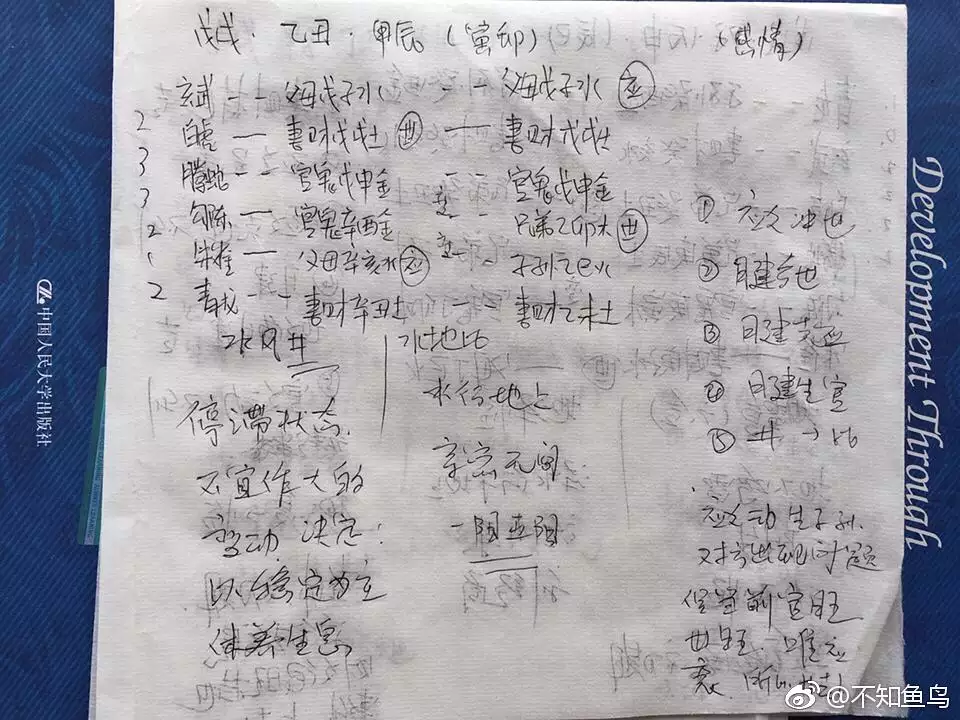 戊戌·乙丑·甲辰(寅卯) (感情)
玄武 - - 父母戊子水 - - 父母戊子水 应
2 白虎 — 妻财戊戌土 世 — 妻财戊戌土
3 腾蛇 - - 官鬼戊申金 - - 官鬼戊申金
3 勾陈 — 官鬼辛酉金 变 - - 兄弟乙卯木 世
2 朱雀 — 父母辛亥水 应 变 - - 子孙乙巳火
1
2 青龙 - - 妻财辛丑土 - 妻财乙未土
水风井
水地比
停滞状态.
不宜作大的
变动 决定:
以稳定为主
休养生息
水行地上
亲密无间
一阳五阴
① 应爻冲世
② 日建合世
③ 月建克应
④ 月建生官
⑤ 井→比
应爻动生子孙.
对方出现问题
但当前官旺
世旺. 唯应
衰.
中国人民大学出版社
Development Through
@不知鱼鸟